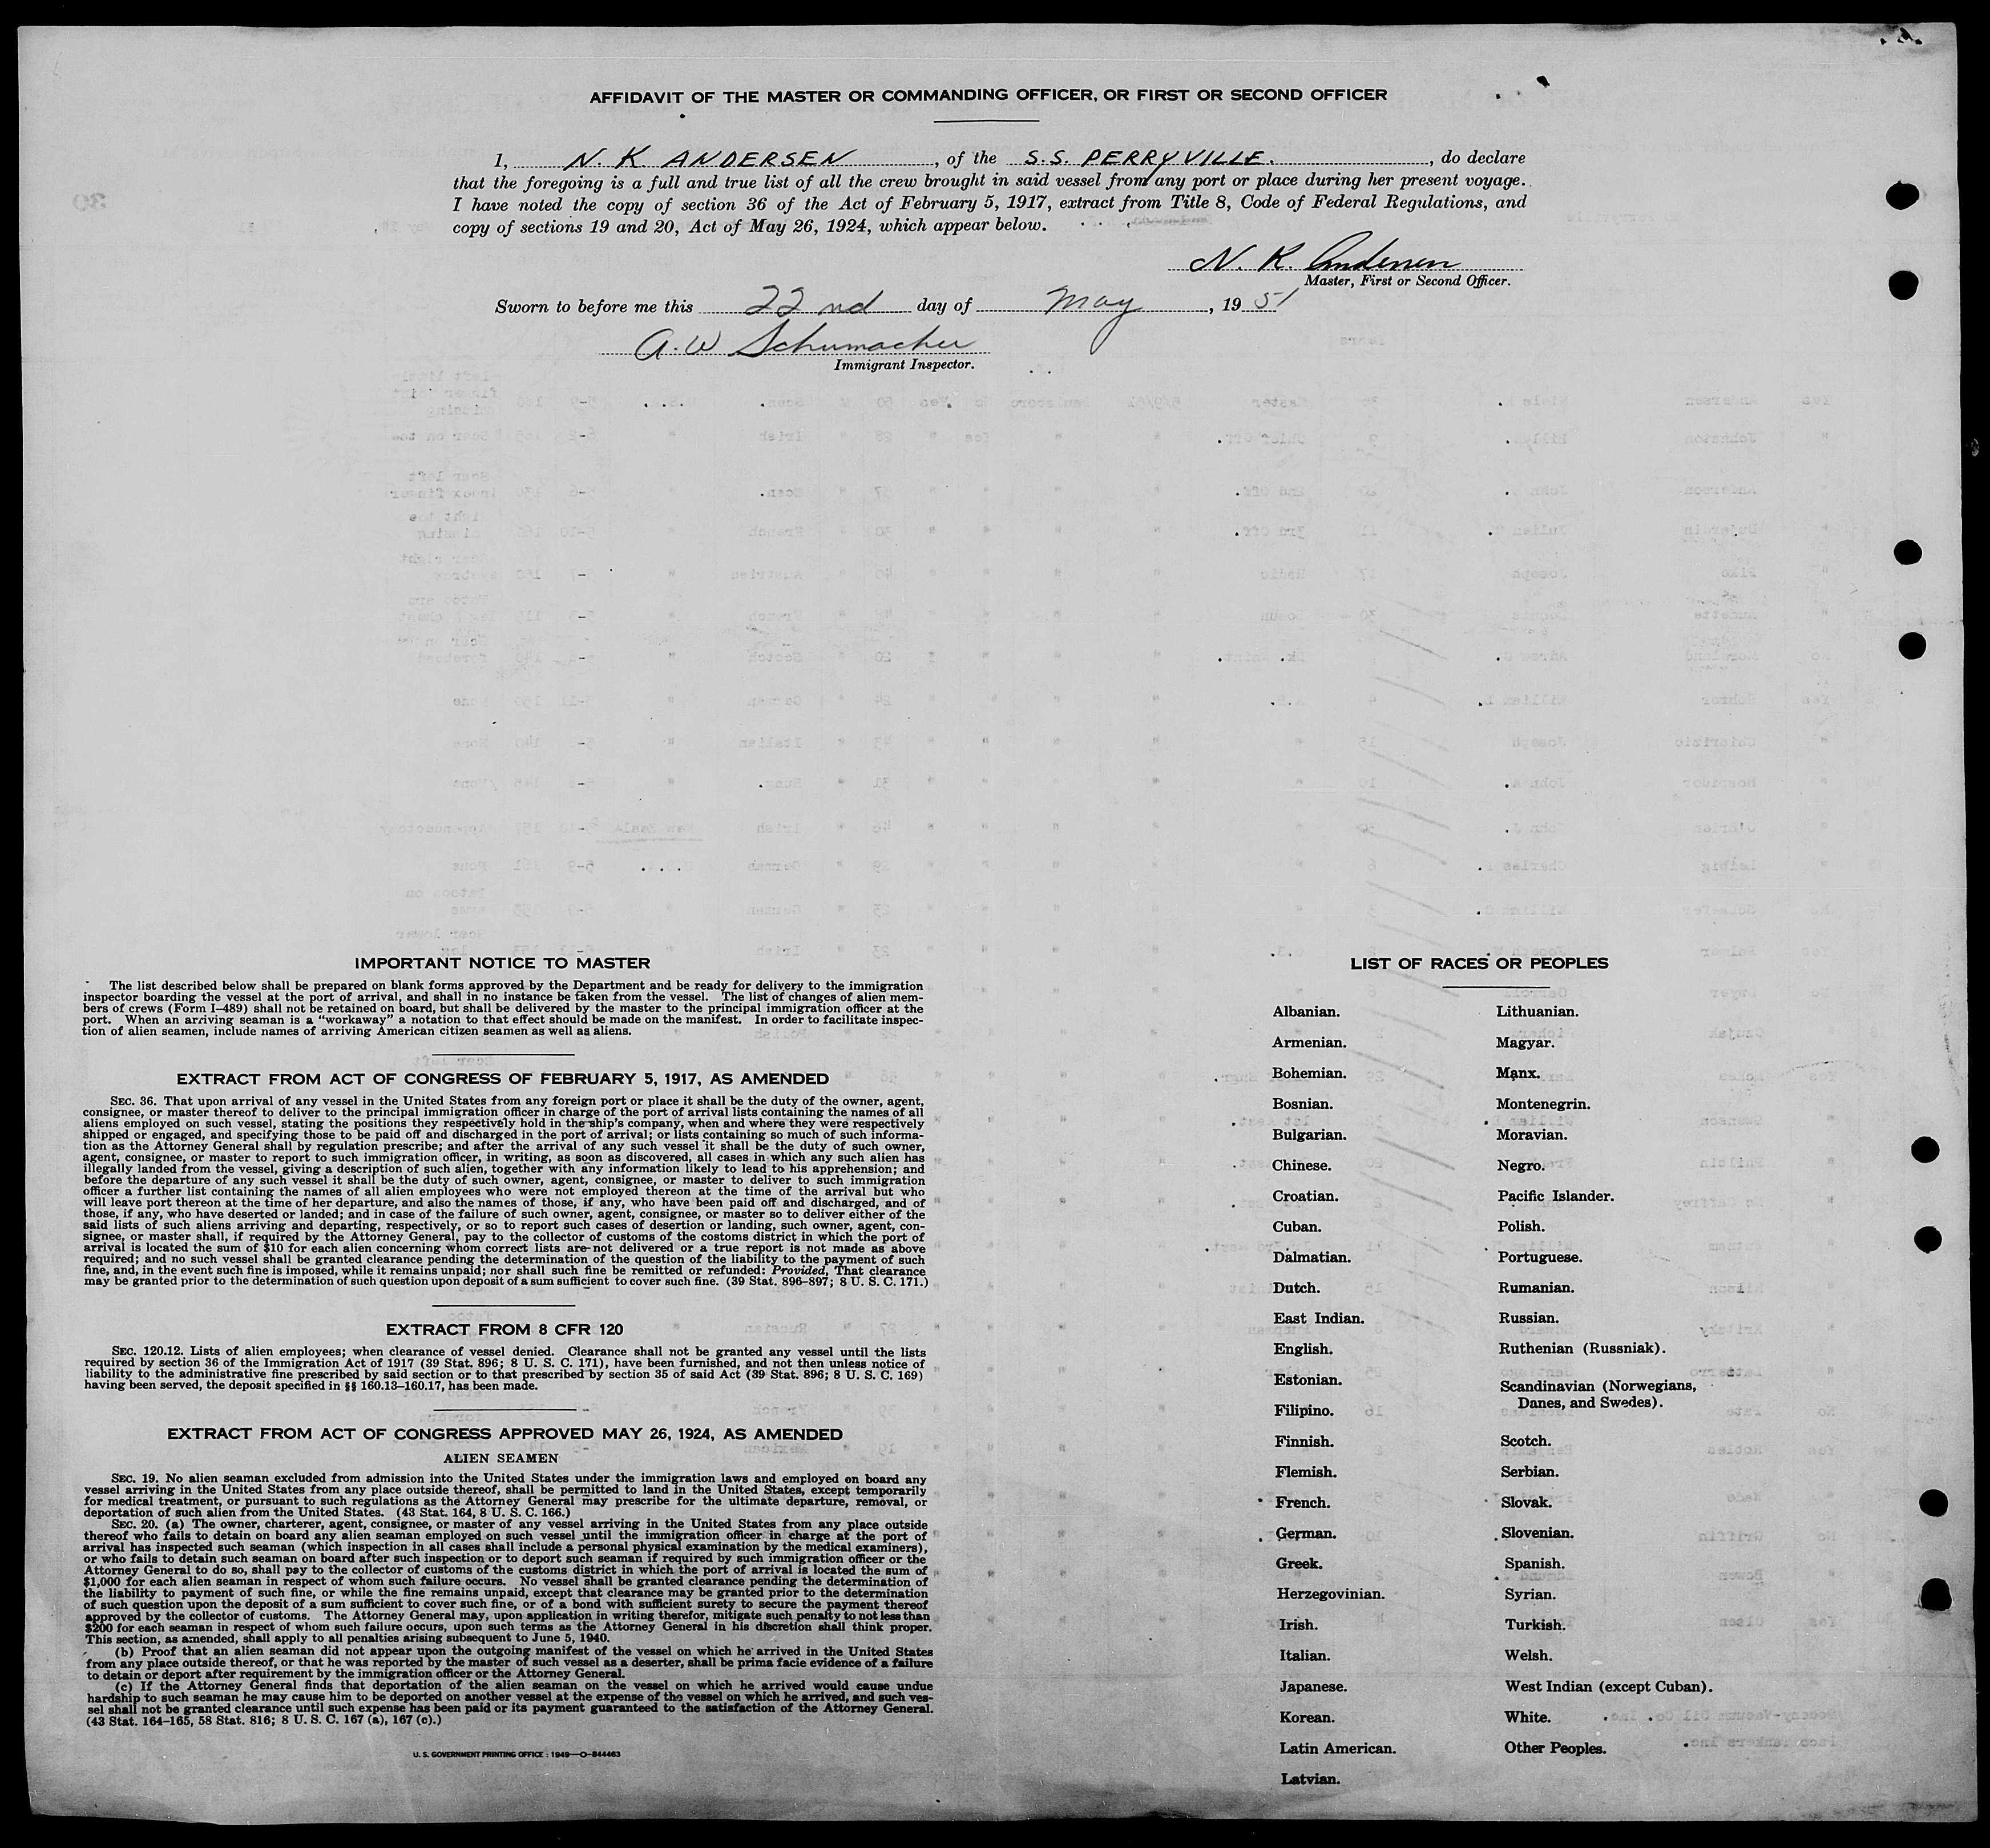 AFFIDAVIT OF THE MASTER OR COMMANDING OFFICER, OR FIRST OR SECOND OFFICER
I, N. K. ANDERSEN, of the S.S. PERRYVILLE., do declare
that the foregoing is a full and true list of all the crew brought in said vessel from any port or place during her present voyage.
I have noted the copy of section 36 of the Act of February 5, 1917, extract from Title 8, Code of Federal Regulations, and
copy of sections 19 and 20, Act of May 26, 1924, which appear below.
N. K. Andersen
Master, First or Second Officer.
Sworn to before me this 22nd day of May, 1951
A. W Schumacher
Immigrant Inspector.
IMPORTANT NOTICE TO MASTER
The list described below shall be prepared on blank forms approved by the Department and be ready for delivery to the immigration
inspector boarding the vessel at the port of arrival, and shall in no instance be taken from the vessel. The list of changes of alien mem-
bers of crews (Form I–489) shall not be retained on board, but shall be delivered by the master to the principal immigration officer at the
port. When an arriving seaman is a "workaway" a notation to that effect should be made on the manifest. In order to facilitate inspec-
tion of alien seamen, include names of arriving American citizen seamen as well as aliens.
EXTRACT FROM ACT OF CONGRESS OF FEBRUARY 5, 1917, AS AMENDED
SEC. 36. That upon arrival of any vessel in the United States from any foreign port or place it shall be the duty of the owner, agent,
consignee, or master thereof to deliver to the principal immigration officer in charge of the port of arrival lists containing the names of all
aliens employed on such vessel, stating the positions they respectively hold in the ship's company, when and where they were respectively
shipped or engaged, and specifying those to be paid off and discharged in the port of arrival; or lists containing so much of such informa-
tion as the Attorney General shall by regulation prescribe; and after the arrival of any such vessel it shall be the duty of such owner,
agent, consignee, or master to report to such immigration officer, in writing, as soon as discovered, all cases in which any such alien has
illegally landed from the vessel, giving a description of such alien, together with any information likely to lead to his apprehension; and
before the departure of any such vessel it shall be the duty of such owner, agent, consignee, or master to deliver to such immigration
officer a further list containing the names of all alien employees who were not employed thereon at the time of the arrival but who
will leave port thereon at the time of her departure, and also the names of those, if any, who have been paid off and discharged, and of
those, if any, who have deserted or landed; and in case of the failure of such owner, agent, consignee, or master so to deliver either of the
said lists of such aliens arriving and departing, respectively, or so to report such cases of desertion or landing, such owner, agent, con-
signee, or master shall, if required by the Attorney General, pay to the collector of customs of the costoms district in which the port of
arrival is located the sum of $10 for each alien concerning whom correct lists are not delivered or a true report is not made as above
required; and no such vessel shall be granted clearance pending the determination of the question of the liability to the payment of such
fine, and, in the event such fine is imposed, while it remains unpaid; nor shall such fine be remitted or refunded: Provided, That clearance
may be granted prior to the determination of such question upon deposit of a sum sufficient to cover such fine. (39 Stat. 896–897; 8 U. S. C. 171.)
EXTRACT FROM 8 CFR 120
SEC. 120.12. Lists of alien employees; when clearance of vessel denied. Clearance shall not be granted any vessel until the lists
required by section 36 of the Immigration Act of 1917 (39 Stat. 896; 8 U. S. C. 171), have been furnished, and not then unless notice of
liability to the administrative fine prescribed by said section or to that prescribed by section 35 of said Act (39 Stat. 896; 8 U. S. C. 169)
having been served, the deposit specified in §§ 160.13–160.17, has been made.
EXTRACT FROM ACT OF CONGRESS APPROVED MAY 26, 1924, AS AMENDED
ALIEN SEAMEN
SEC. 19. No alien seaman excluded from admission into the United States under the immigration laws and employed on board any
vessel arriving in the United States from any place outside thereof, shall be permitted to land in the United States, except temporarily
for medical treatment, or pursuant to such regulations as the Attorney General may prescribe for the ultimate departure, removal, or
deportation of such alien from the United States. (43 Stat. 164, 8 U. S. C. 166.)
SEC. 20. (a) The owner, charterer, agent, consignee, or master of any vessel arriving in the United States from any place outside
thereof who fails to detain on board any alien seaman employed on such vessel until the immigration officer in charge at the port of
arrival has inspected such seaman (which inspection in all cases shall include a personal physical examination by the medical examiners),
or who fails to detain such seaman on board after such inspection or to deport such seaman if required by such immigration officer or the
Attorney General to do so, shall pay to the collector of customs of the customs district in which the port of arrival is located the sum of
$1,000 for each alien seaman in respect of whom such failure occurs. No vessel shall be granted clearance pending the determination of
the liability to the payment of such fine, or while the fine remains unpaid, except that clearance may be granted prior to the determination
of such question upon the deposit of a sum sufficient to cover such fine, or of a bond with sufficient surety to secure the payment thereof
approved by the collector of customs. The Attorney General may, upon application in writing therefor, mitigate such penalty to not less than
$200 for each seaman in respect of whom such failure occurs, upon such terms as the Attorney General in his discretion shall think proper.
This section, as amended, shall apply to all penalties arising subsequent to June 5, 1940.
(b) Proof that an alien seaman did not appear upon the outgoing manifest of the vessel on which he arrived in the United States
from any place outside thereof, or that he was reported by the master of such vessel as a deserter, shall be prima facie evidence of a failure
to detain or deport after requirement by the immigration officer or the Attorney General.
(c) If the Attorney General finds that deportation of the alien seaman on the vessel on which he arrived would cause undue
hardship to such seaman he may cause him to be deported on another vessel at the expense of the vessel on which he arrived, and such ves-
sel shall not be granted clearance until such expense has been paid or its payment guaranteed to the satisfaction of the Attorney General.
(43 Stat. 164–165, 58 Stat. 816; 8 U. S. C. 167 (a), 167 (c).)
U. S. GOVERNMENT PRINTING OFFICE : 1949—O–844463
LIST OF RACES OR PEOPLES
Albanian.
Armenian.
Bohemian.
Bosnian.
Bulgarian.
Chinese.
Croatian.
Cuban.
Dalmatian.
Dutch.
East Indian.
English.
Estonian.
Filipino.
Finnish.
Flemish.
French.
German.
Greek.
Herzegovinian.
Irish.
Italian.
Japanese.
Korean.
Latin American.
Latvian.
Lithuanian.
Magyar.
Manx.
Montenegrin.
Moravian.
Negro.
Pacific Islander.
Polish.
Portuguese.
Rumanian.
Russian.
Ruthenian (Russniak).
Scandinavian (Norwegians,
Danes, and Swedes).
Scotch.
Serbian.
Slovak.
Slovenian.
Spanish.
Syrian.
Turkish.
Welsh.
West Indian (except Cuban).
White.
Other Peoples.